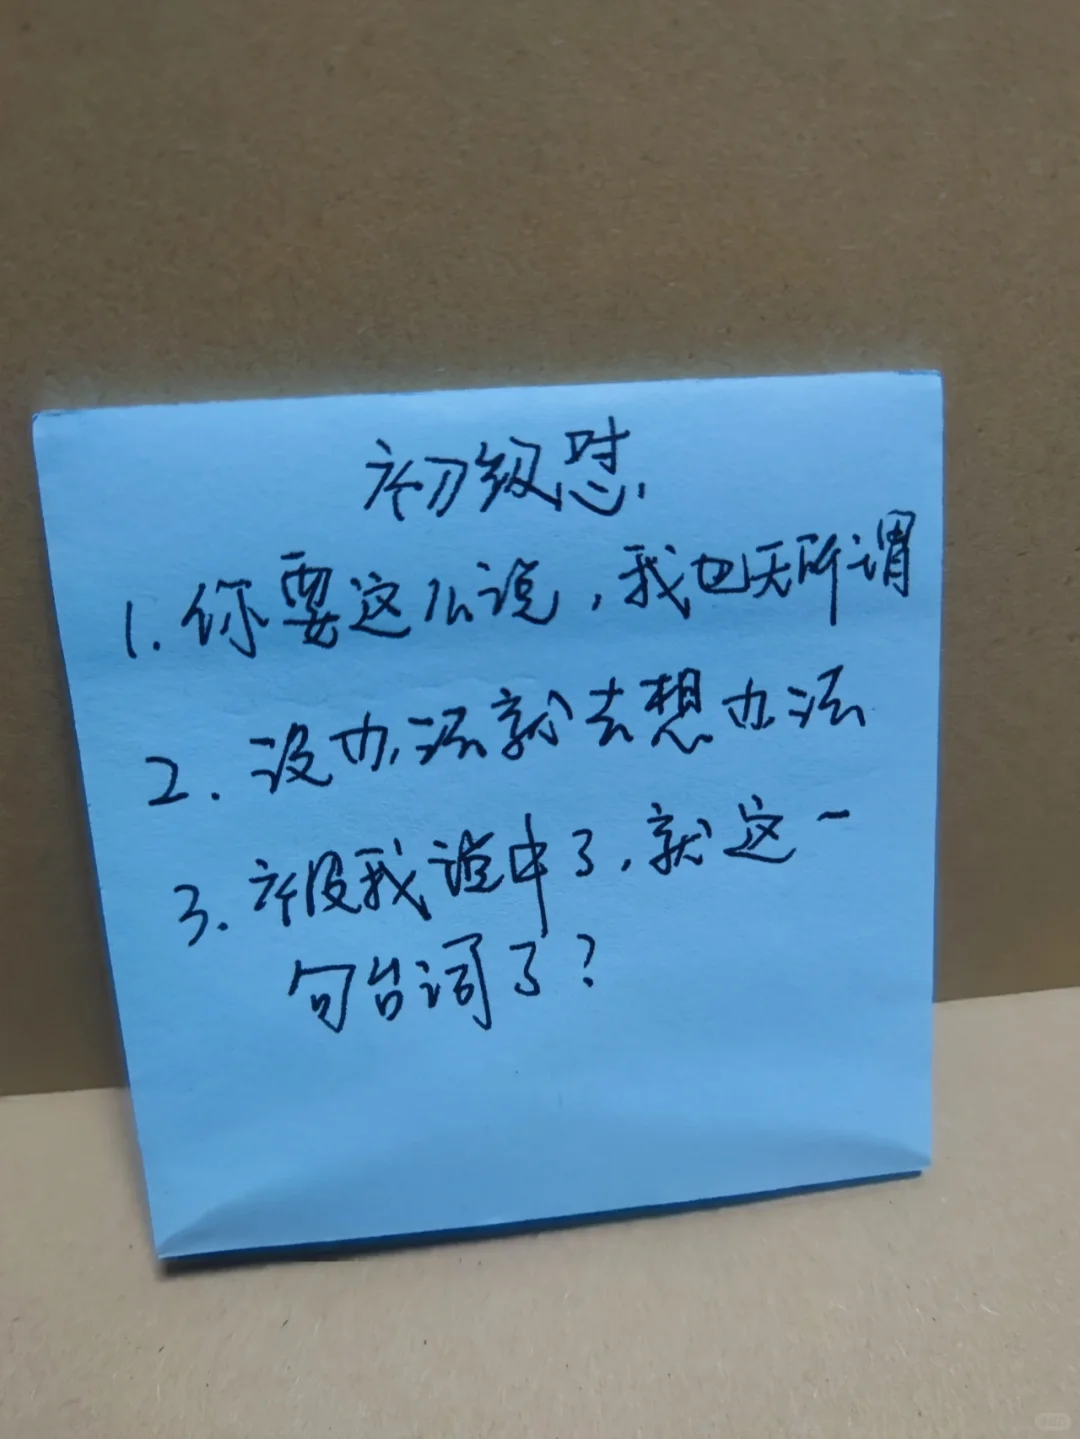 初级怼
1. 你要这么说，我也无所谓
2. 没办法就去想办法
3. 被我说中了，就这一
句台词了？